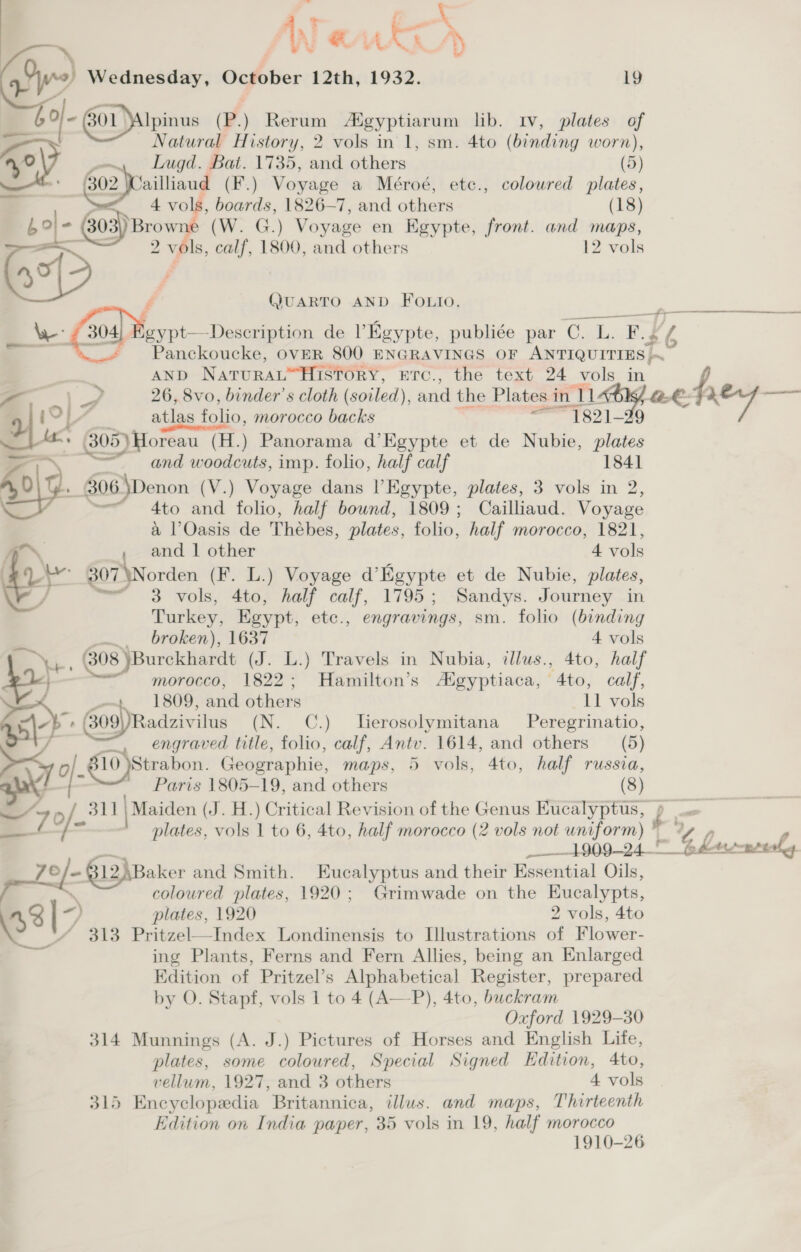 Wednesday, October 12th, 1932. 19
60/- 301 Alpinus (P.) Rerum Ægyptiarum lib. IV, plates of
Natural History, 2 vols in 1, sm. 4to (binding worn),
Lugd. Bat. 1735, and others (5)
302 Cailliaud (F.) Voyage a Méroé, etc., coloured plates,
4 vols, boards, 1826–7, and others (18)
303 Browne (W. G.) Voyage en Egypte, front. and maps,
2 vols, calf, 1800, and others 12 vols
QUARTO AND FOLIO.
304 Egypt—Description de l'Égypte, publiée par C. L. F.
Panckoucke, OVER 800 ENGRAVINGS OF ANTIQUITIES
AND NATURAL HISTORY, ETC., the text 24 vols in
26, 8vo, binder's cloth (soiled), and the Plates in 11
atlas folio, morocco backs 1821–29
305 Horeau (H.) Panorama d'Egypte et de Nubie, plates
and woodcuts, imp. folio, half calf 1841
306 Denon (V.) Voyage dans l'Egypte, plates, 3 vols in 2,
4to and folio, half bound, 1809; Cailliaud. Voyage
a l'Oasis de Thèbes, plates, folio, half morocco, 1821,
and 1 other 4 vols
307 Norden (F. L.) Voyage d'Egypte et de Nubie, plates,
3 vols, 4to, half calf, 1795; Sandys. Journey in
Turkey, Egypt, etc., engravings, sm. folio (binding
broken), 1637 4 vols
308 Burckhardt (J. L.) Travels in Nubia, illus., 4to, half
morocco, 1822; Hamilton's Ægyptiaca, 4to, calf,
1809, and others 11 vols
309 Radzivilus (N. C.) Iierosolymitana Peregrinatio,
engraved title, folio, calf, Antv. 1614, and others (5)
310 Strabon. Geographie, maps, 5 vols, 4to, half russia,
Paris 1805–19, and others (8)
70/- 311 Maiden (J. H.) Critical Revision of the Genus Eucalyptus,
plates, vols 1 to 6, 4to, half morocco (2 vols not uniform)
1909–24
70/- 312 Baker and Smith. Eucalyptus and their Essential Oils,
coloured plates, 1920; Grimwade on the Eucalypts,
plates, 1920 2 vols, 4to
313 Pritzel—Index Londinensis to Illustrations of Flower-
ing Plants, Ferns and Fern Allies, being an Enlarged
Edition of Pritzel's Alphabetical Register, prepared
by O. Stapf, vols 1 to 4 (A—P), 4to, buckram
Oxford 1929–30
314 Munnings (A. J.) Pictures of Horses and English Life,
plates, some coloured, Special Signed Edition, 4to,
vellum, 1927, and 3 others 4 vols
315 Encyclopædia Britannica, illus. and maps, Thirteenth
Edition on India paper, 35 vols in 19, half morocco
1910–26